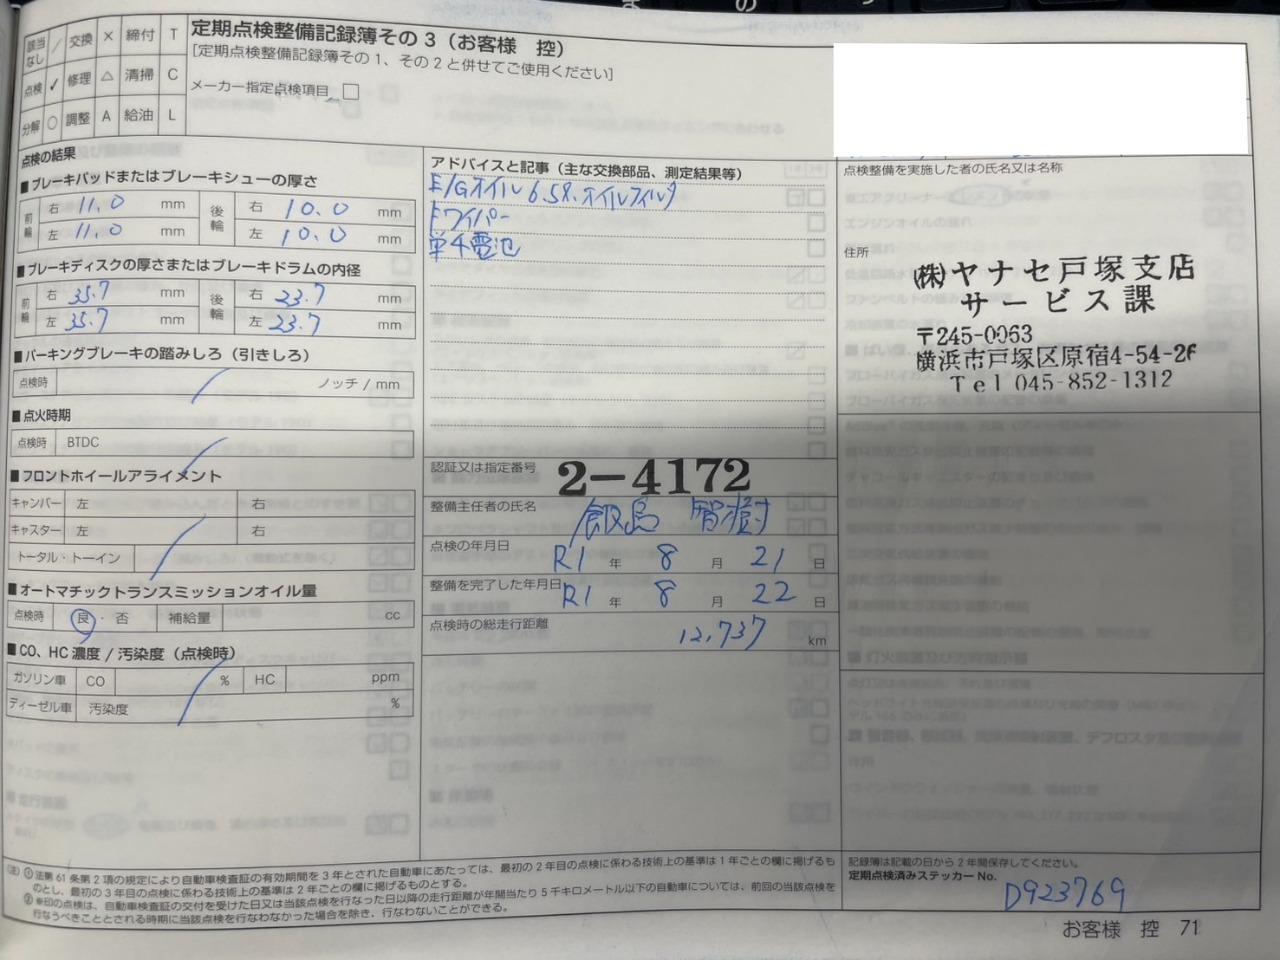 該当なし / 交換 × 締付 T
点検 ✓ 修理 △ 清掃 C
分解 ○ 調整 A 給油 L
定期点検整備記録簿その3（お客様 控）
[定期点検整備記録簿その1、その2と併せてご使用ください]
メーカー指定点検項目 □
点検の結果
■ブレーキパッドまたはブレーキシューの厚さ
前輪 右 11.0 mm 後輪 右 10.0 mm
左 11.0 mm 左 10.0 mm
■ブレーキディスクの厚さまたはブレーキドラムの内径
前輪 右 35.7 mm 後輪 右 23.7 mm
左 35.7 mm 左 23.7 mm
■パーキングブレーキの踏みしろ（引きしろ）
点検時 ノッチ / mm
■点火時期
点検時 BTDC
■フロントホイールアライメント
キャンバー 左 右
キャスター 左 右
トータル・トーイン
■オートマチックトランスミッションオイル量
点検時 良・否 補給量 cc
■CO、HC 濃度 / 汚染度（点検時）
ガソリン車 CO % HC ppm
ディーゼル車 汚染度 %
アドバイスと記事（主な交換部品、測定結果等）
E/Gオイル 6.5ℓ、オイルフィルタ
Fワイパー
単4電池
認証又は指定番号 2-4172
整備主任者の氏名 飯島 智樹
点検の年月日 R1 年 8 月 21 日
整備を完了した年月日 R1 年 8 月 22 日
点検時の総走行距離 12,737 km
点検整備を実施した者の氏名又は名称
住所
(株)ヤナセ戸塚支店
サービス課
〒245-0063
横浜市戸塚区原宿4-54-2F
Tel 045-852-1312
(注) ① 法第 61 条第 2 項の規定により自動車検査証の有効期間を 3 年とされた自動車にあたっては、最初の 2 年目の点検に係わる技術上の基準は 1 年ごとの欄に掲げるも
のとし、最初の 3 年目の点検に係わる技術上の基準は 2 年ごとの欄に掲げるものとする。
② ※印の点検は、自動車検査証の交付を受けた日又は当該点検を行なった日以降の走行距離が年間当たり 5 千キロメートル以下の自動車については、前回の当該点検を
行なうべきこととされる時期に当該点検を行なわなかった場合を除き、行なわないことができる。
記録簿は記載の日から 2 年間保存してください。
定期点検済みステッカー No.
D923769
お客様 控 71